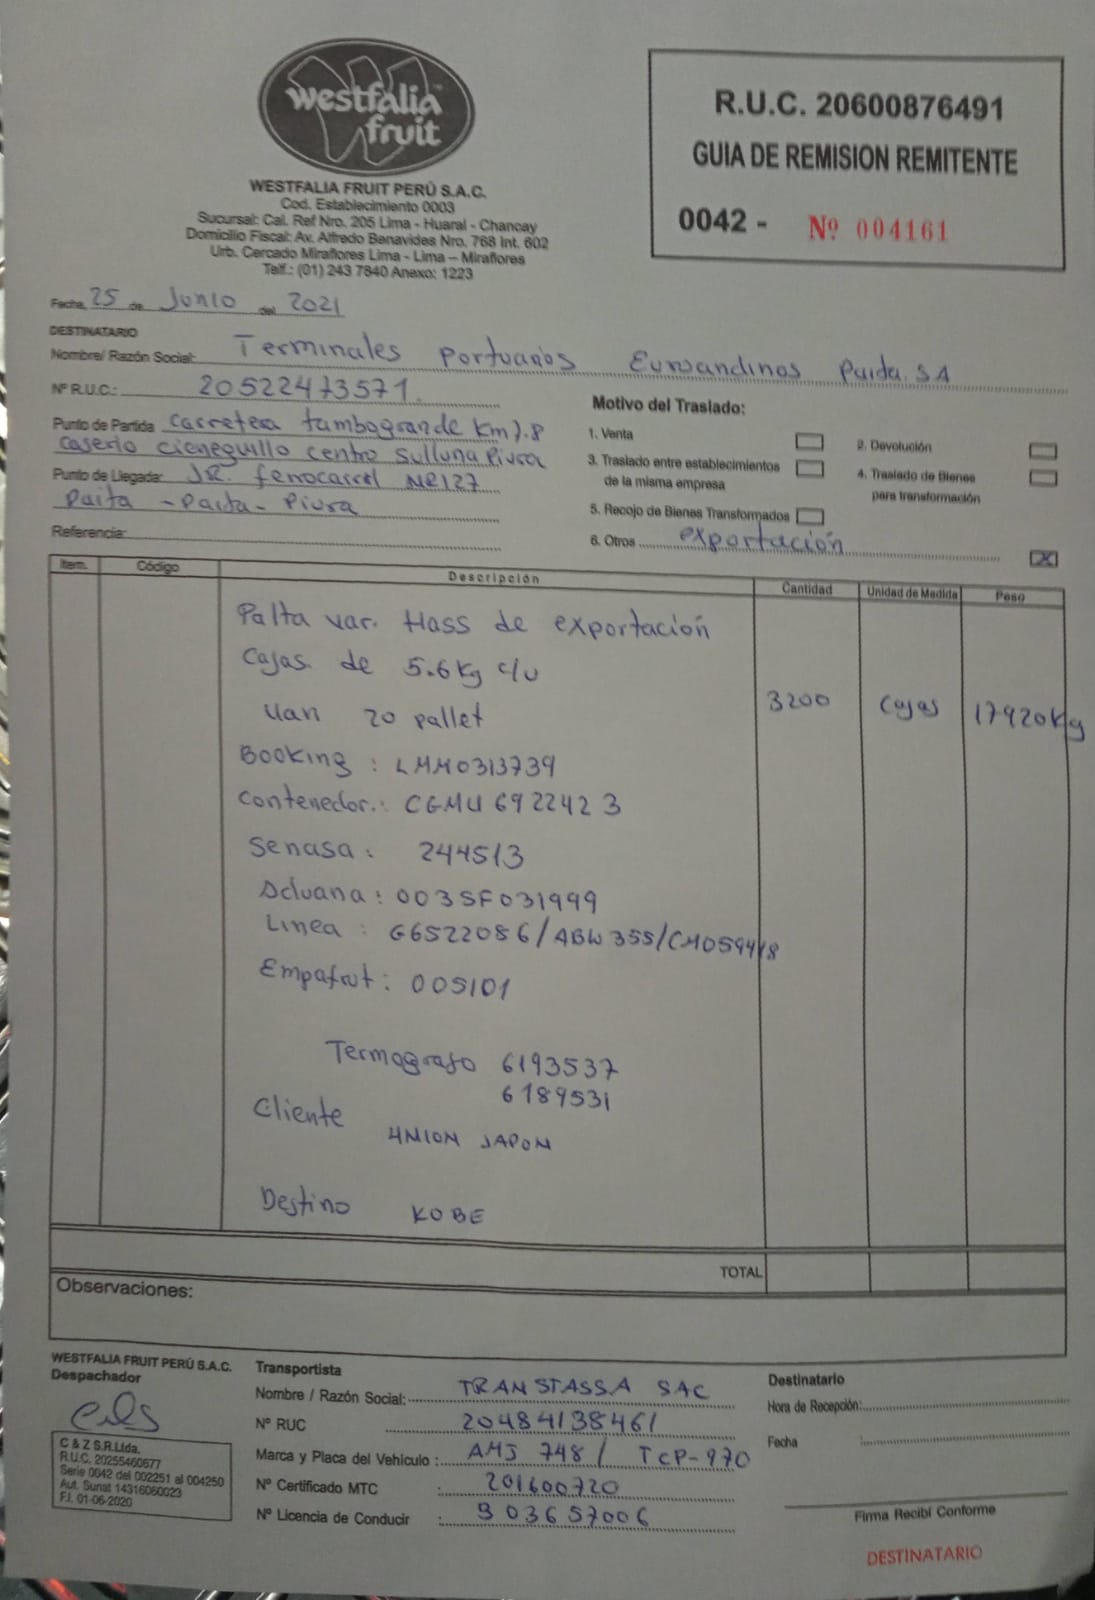 westfalia
fruit
WESTFALIA FRUIT PERÚ S.A.C.
Cod. Establecimiento 0003
Sucursal: Cal. Ref Nro. 205 Lima - Huaral - Chancay
Domicilio Fiscal: Av. Alfredo Benavides Nro. 768 Int. 602
Urb. Cercado Miraflores Lima - Lima – Miraflores
Telf.: (01) 243 7840 Anexo: 1223
R.U.C. 20600876491
GUIA DE REMISION REMITENTE
0042 - Nº 004161
Fecha, 25 de Junio del 2021
DESTINATARIO
Nombre/ Razón Social: Terminales Portuarios Euroandinos Paita. SA
Nº R.U.C.: 20522473571.
Punto de Partida carretera tambogrande Km 7.8
caserio cieneguillo centro sullana Piura
Punto de Llegada: JR. ferrocarril NR 127
Paita - Paita - Piura
Referencia:
Motivo del Traslado:
1. Venta
2. Devolución
3. Traslado entre establecimientos
de la misma empresa
4. Traslado de Bienes
para transformación
5. Recojo de Bienes Transformados
6. Otros exportación X
Item. Código Descripción Cantidad Unidad de Medida Peso
Palta var. Hass de exportación
Cajas. de 5.6 Kg c/u
Van 20 pallet 3200 Cajas 17920Kg
Booking : LMM0313739
Contenedor.: CGMU 692242 3
Senasa : 244513
Aduana : 003SF031999
Linea : G6522086/ABW 355/CM059418
Empafrut : 005101
Termografo 6193537
6189531
Cliente
UNION JAPON
Destino KOBE
TOTAL
Observaciones:
WESTFALIA FRUIT PERÚ S.A.C.
Despachador
C & Z S.R.Ltda.
R.U.C. 20255460677
Serie 0042 del 002251 al 004250
Aut. Sunat 14316060023
F.I. 01-06-2020
Transportista
Nombre / Razón Social: TRANSTASSA SAC
Nº RUC 20484138461
Marca y Placa del Vehículo : AMJ 748 / TCP-970
Nº Certificado MTC : 201600720
Nº Licencia de Conducir : B03657006
Destinatario
Hora de Recepción:
Fecha :
Firma Recibí Conforme
DESTINATARIO